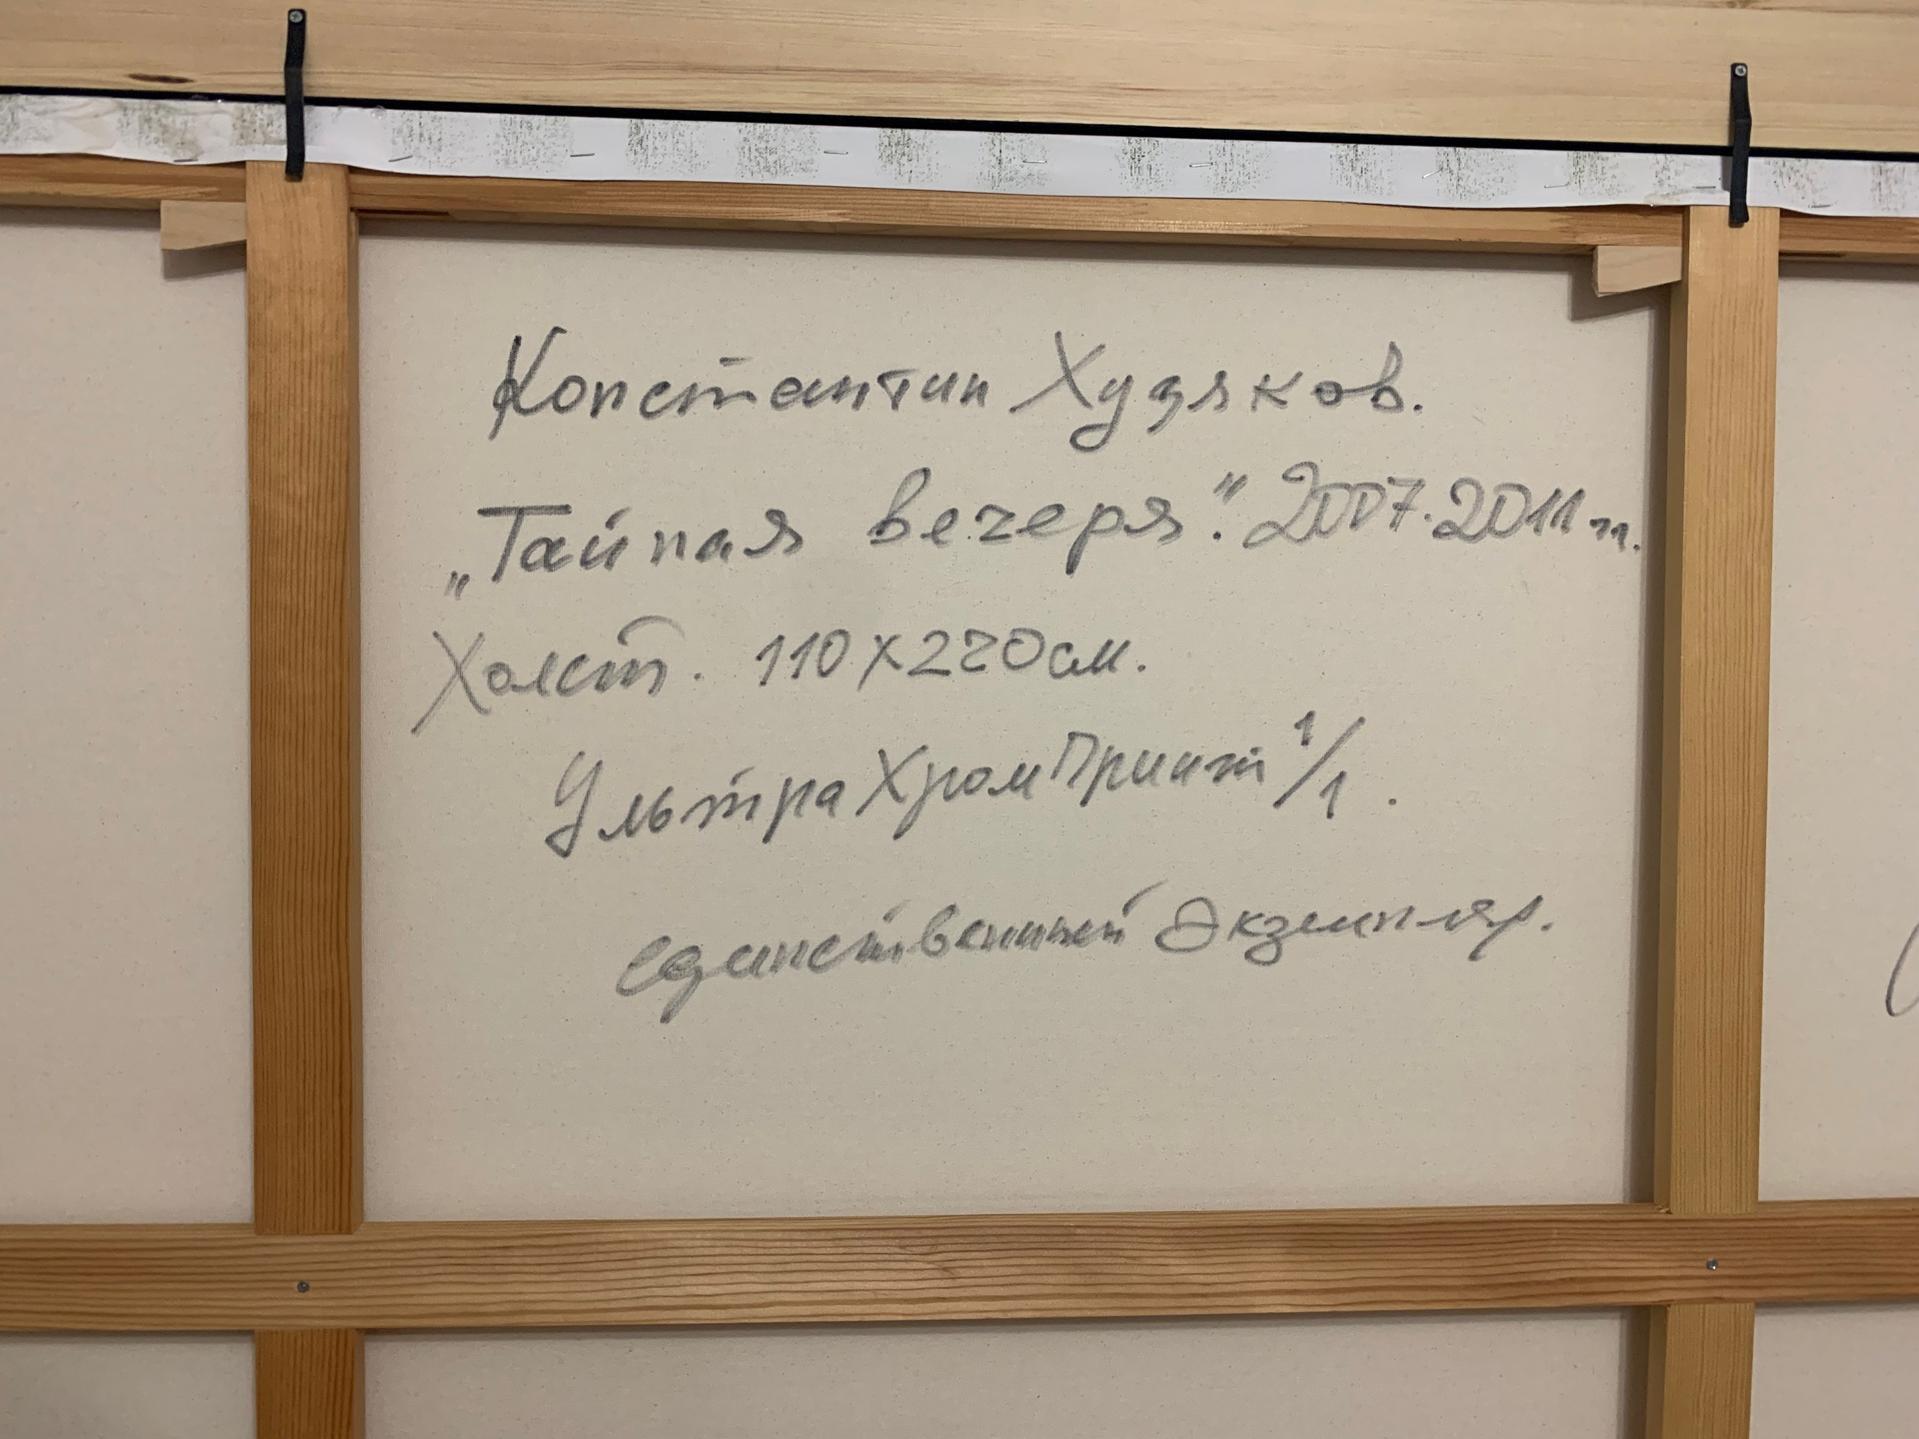 Константин Худяков.
„Тайная вечеря". 2007.2011 гг.
Холст. 110 х 220 см.
УльтраХромПринт 1/1.
единственный Экземпляр.